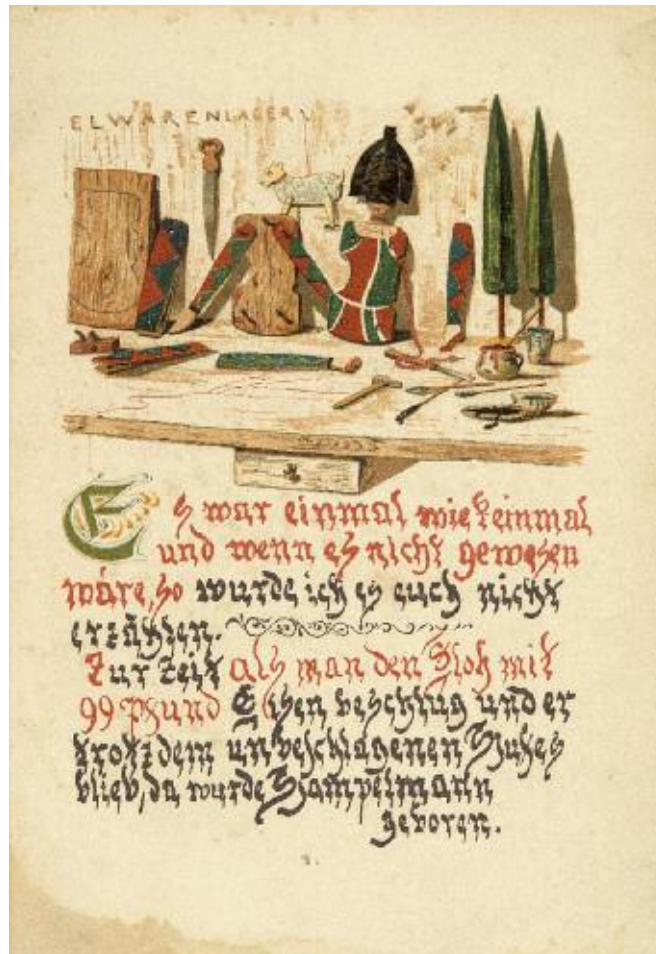 ELWARENLAGER
Es war einmal wie keinmal
und wenn es nicht gewesen
wäre, so wurde ich es euch nicht
erzählen.
Zur Zeit als man den Floh mit
99 Pfund Eisen beschlug und er
trotzdem unbeschlagenen Fuses
blieb, da wurde Hampelmann
geboren.